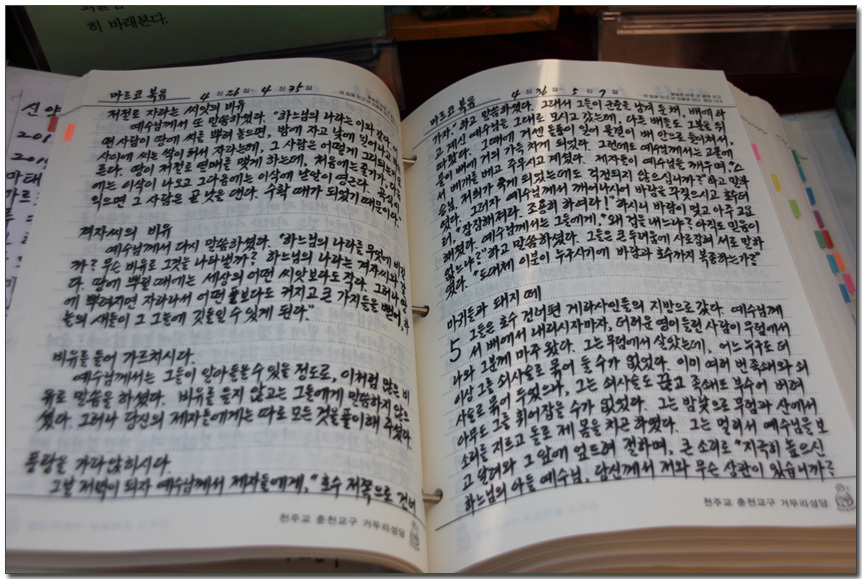 히 바래본다.
신약
마르코 복음 4장 26절~4장 35절
저절로 자라는 씨앗의 비유
예수님께서 또 말씀하셨다. "하느님의 나라는 이와 같다. 어
떤 사람이 땅에 씨를 뿌려 놓으면, 밤에 자고 낮에 일어나고
사이에 씨는 싹이 터서 자라는데, 그 사람은 어떻게 그리되는지 모
른다. 땅이 저절로 열매를 맺게 하는데, 처음에는 줄기가
에는 이삭이 나오고 그 다음에는 이삭에 낟알이 영근다. 곡식이
익으면 그 사람은 곧 낫을 댄다. 수확 때가 되었기 때문이다."
겨자씨의 비유
예수님께서 다시 말씀하셨다. "하느님의 나라를 무엇에 비길
까? 무슨 비유로 그것을 나타낼까? 하느님의 나라는 겨자씨와 같
다. 땅에 뿌릴 때에는 세상의 어떤 씨앗보다도 작다. 그러나 땅
에 뿌려지면 자라나서 어떤 풀보다도 커지고 큰 가지들을 뻗어, 하
늘의 새들이 그 그늘에 깃들일 수 있게 된다."
비유를 들어 가르치시다.
예수님께서는 그들이 알아들을 수 있을 정도로, 이처럼 많은 비
유로 말씀을 하셨다. 비유를 들지 않고는 그들에게 말씀하지 않으
셨다. 그러나 당신의 제자들에게는 따로 모든 것을 풀이해 주셨다.
풍랑을 가라앉히시다.
그날 저녁이 되자 예수님께서 제자들에게, "호수 저쪽으로 건너
마르코 복음 4장 36~5장 7절
가자." 하고 말씀하셨다. 그래서 그들이 군중을 남겨 둔 채, 배에 타
고 계신 예수님을 그대로 모시고 갔는데, 다른 배들도 그분을 뒤
따랐다. 그때에 거센 돌풍이 일어 물결이 배 안으로 들이쳐서,
물이 배에 거의 가득 차게 되었다. 그런데도 예수님께서는 고물에
서 베개를 베고 주무시고 계셨다. 제자들이 예수님을 깨우며, "스
승님, 저희가 죽게 되었는데도 걱정되지 않으십니까?" 하고 말하
였다. 그러자 예수님께서 깨어나시어 바람을 꾸짖으시고 호수더
러, "잠잠해져라. 조용히 하여라!" 하시니 바람이 멎고 아주 고요
해졌다. 예수님께서는 그들에게, "왜 겁을 내느냐? 아직도 믿음이
없느냐?" 하고 말씀하셨다. 그들은 큰 두려움에 사로잡혀 서로 말하
였다. "도대체 이분이 누구시기에 바람과 호수까지 복종하는가?"
마귀들과 돼지 떼
5 그들은 호수 건너편 게라사인들의 지방으로 갔다. 예수님께
서 배에서 내리시자마자, 더러운 영이 들린 사람이 무덤에서
나와 그분께 마주 왔다. 그는 무덤에서 살았는데, 어느 누구도 더
이상 그를 쇠사슬로 묶어 둘 수가 없었다. 이미 여러 번 족쇄와 쇠
사슬로 묶어 두었으나, 그는 쇠사슬도 끊고 족쇄도 부수어 버려
아무도 그를 휘어잡을 수가 없었다. 그는 밤낮으로 무덤과 산에서
소리를 지르고 돌로 제 몸을 치곤 하였다. 그는 멀리서 예수님을 보
고 달려와 그 앞에 엎드려 절하며, 큰 소리로 "지극히 높으신
하느님의 아들 예수님, 당신께서 저와 무슨 상관이 있습니까?
천주교 춘천교구 거두리성당
천주교 춘천교구 거두리성당